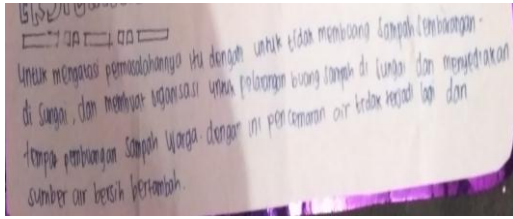 untuk mengatasi permasalahannya itu dengan untuk tidak membuang sampah sembarangan
di sungai, dan membuat organisasi untuk pelarangan buang sampah di sungai dan menyediakan
tempat pembuangan sampah warga. dengan ini pencemaran air tidak terjadi lagi dan
sumber air bersih bertambah.